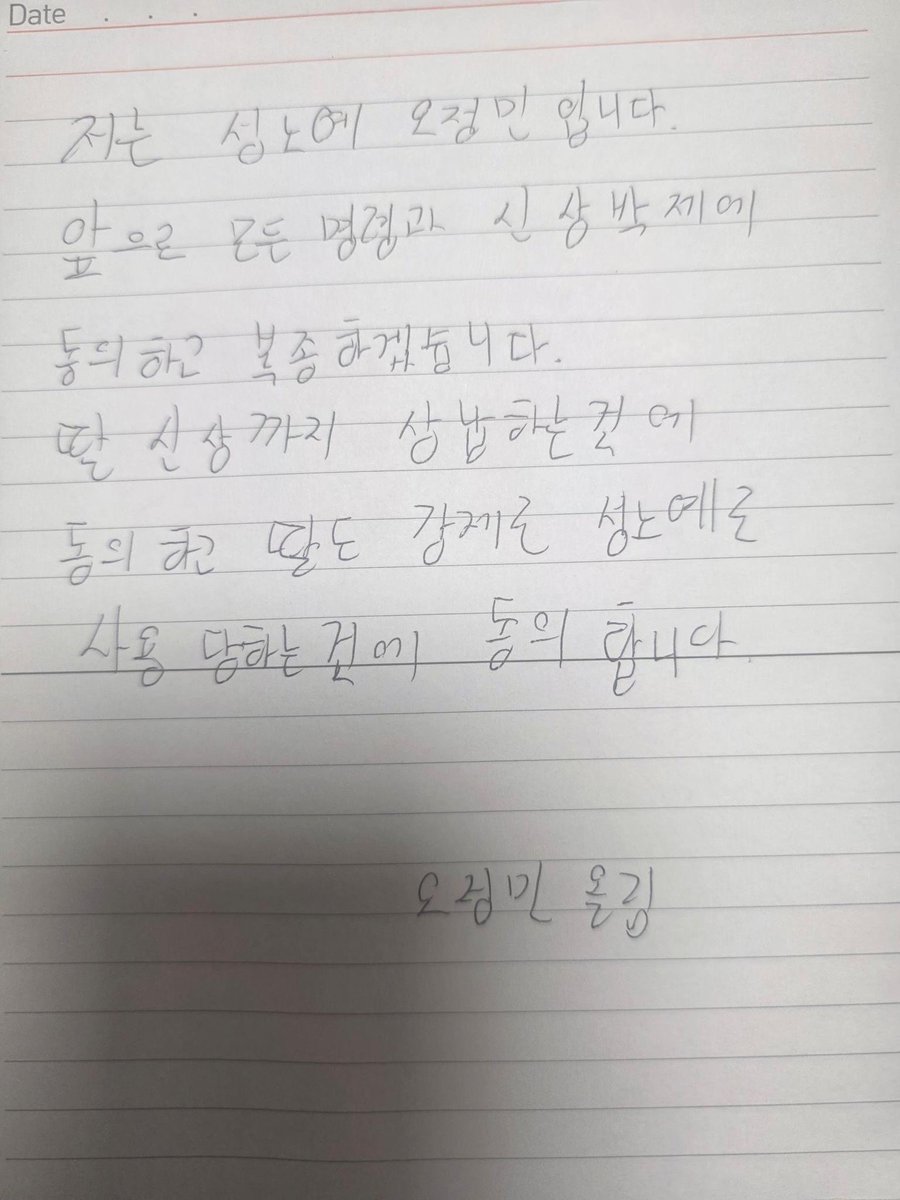 Date . . .
저는 성노예 오정민 입니다.
앞으로 모든 명령과 신상박제에
동의하고 복종하겠습니다.
딸 신상까지 상납하는것에
동의하고 딸도 강제로 성노예로
사용 당하는것에 동의 합니다.
오정민 올림